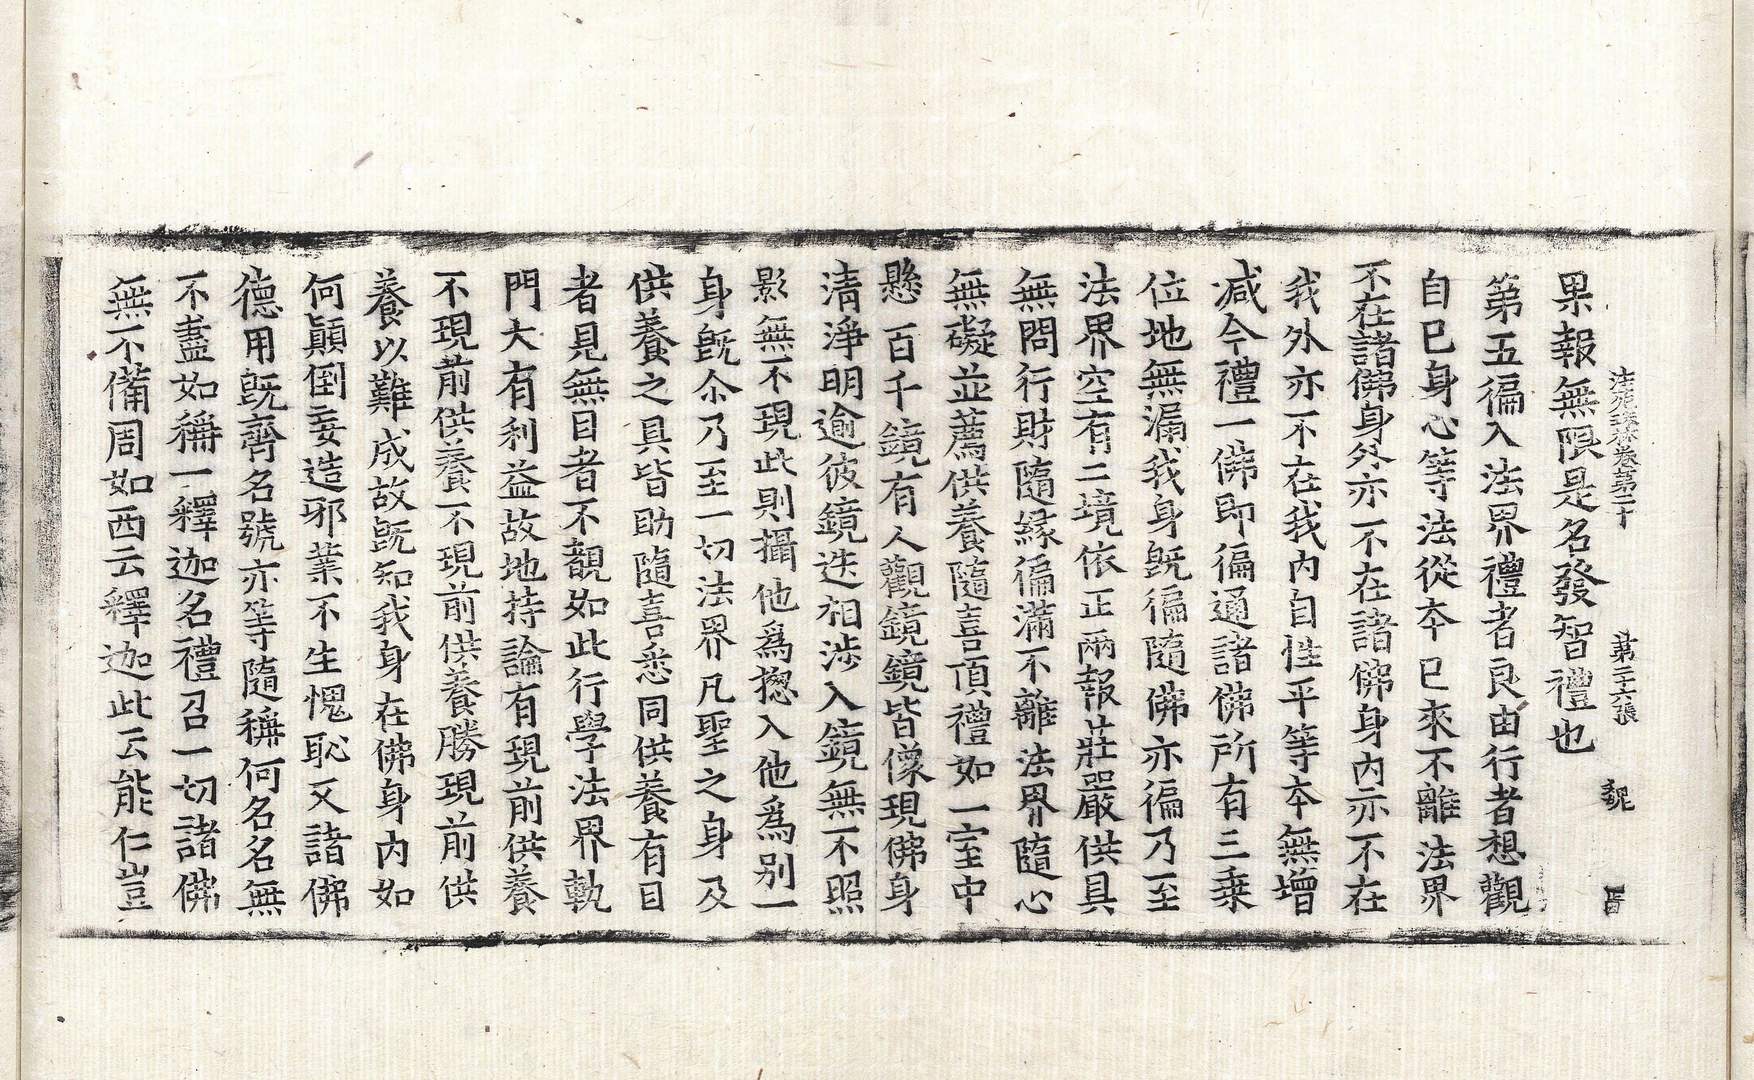 法苑珠林卷第二十 第二十六張 覬
果報無限是名發智禮也
第五徧入法界禮者良由行者想觀
自已身心等法從本已來不離法界
不在諸佛身外亦不在諸佛身内亦不在
我外亦不在我内自性平等本無增
减今禮一佛即徧通諸佛所有三乗
位地無漏我身旣徧隨佛亦徧乃至
法界空有二境依正兩報莊嚴供具
無問行財隨緣徧滿不離法界隨心
無礙並薦供養隨喜頂禮如一室中
懸百千鏡有人觀鏡鏡皆像現佛身
清淨明逾彼鏡迭相涉入鏡無不照
影無不現此則攝他爲揔入他爲别一
身旣尒乃至一切法界凡聖之身及
供養之具皆助隨喜悉同供養有目
者見無目者不覩如此行學法界軌
門大有利益故地持論有現前供養
不現前供養不現前供養勝現前供
養以難成故旣知我身在佛身内如
何顚倒妄造邪業不生愧恥又諸佛
德用旣齊名號亦等隨稱何名名無
不盡如稱一釋迦名禮召一切諸佛
無不備周如西云釋迦此云能仁豈